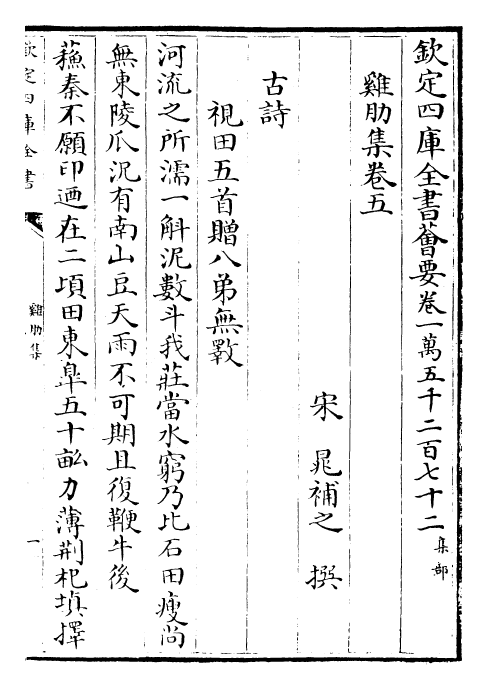 欽定四庫全書薈要卷一萬五千二百七十二 集部
雞肋集卷五
宋 晁補之 撰
古詩
視田五首贈八弟無斁
河流之所濡一斛泥數斗我莊當水窮乃比石田瘦尚
無東陵瓜況有南山豆天雨不可期且復鞭牛後
蘓秦不願印迺在二頃田東臯五十畝力薄荆杞塡擇
欽定四庫全書
雞肋集
一